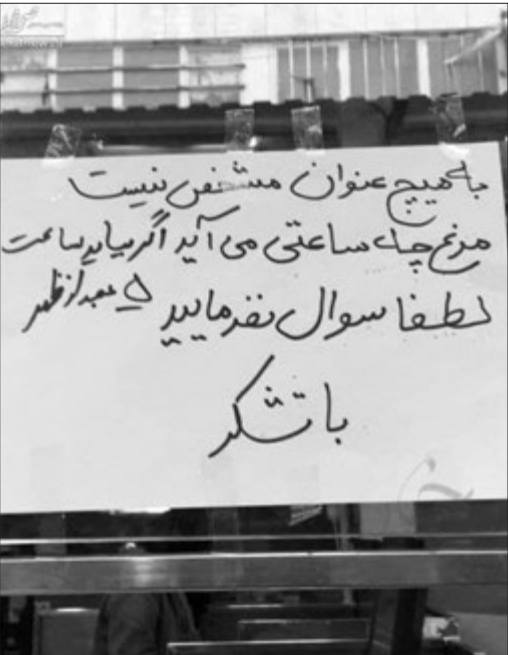 به هیچ عنوان مشخص نیست
مرغ چه ساعتی می آید اگر بیاید ساعت
لطفا سوال نفرمایید ۵ بعد از ظهر
با تشکر